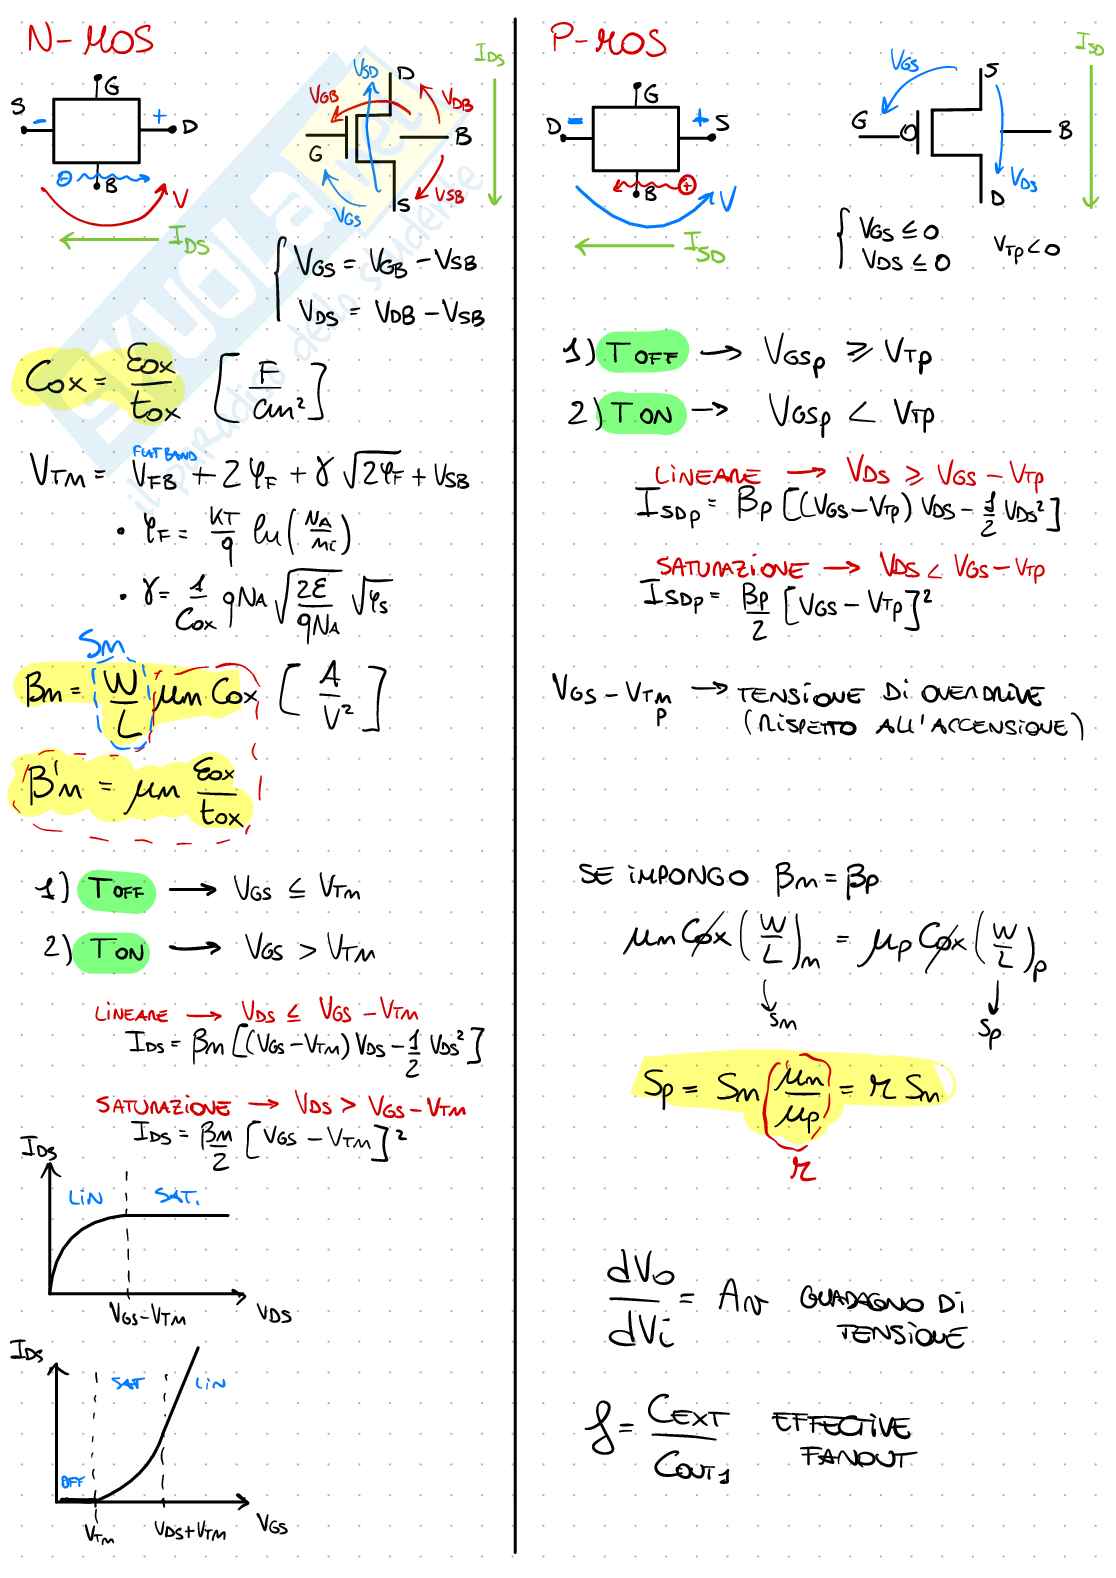 N-MOS
G
S
-
+
D
B
V
I_DS
I_DS
V_SD
D
V_GB
V_DB
G
B
V_GS
V_SB
S
V_GS = V_GB - V_SB
V_DS = V_DB - V_SB
C_ox = ε_ox / t_ox [F / cm²]
FLAT BAND
V_Tm = V_FB + 2φ_F + γ √2φ_F + V_SB
• φ_F = KT/q ln(N_A / m_C)
• γ = 1/C_ox q N_A √(2ε / qN_A) √φ_S
Sm
β_m = W/L μ_m C_ox [A / V²]
β'_m = μ_m ε_ox / t_ox
1) T OFF → V_GS ≤ V_Tm
2) T ON → V_GS > V_Tm
LINEARE → V_DS ≤ V_GS - V_Tm
I_DS = β_m [(V_GS - V_Tm) V_DS - 1/2 V_DS²]
SATURAZIONE → V_DS > V_GS - V_Tm
I_DS = β_m/2 [V_GS - V_Tm]²
I_DS
LIN
SAT.
V_GS - V_Tm
V_DS
I_DS
SAT
LIN
OFF
V_Tm
V_DS + V_Tm
V_GS
P-MOS
G
D
-
+
S
B
V
I_SD
V_GS
S
I_SD
G
B
V_DS
D
V_GS ≤ 0
V_DS ≤ 0
V_Tp < 0
1) T OFF → V_GSp ≥ V_Tp
2) T ON → V_GSp < V_Tp
LINEARE → V_DS ≥ V_GS - V_Tp
I_SDp = β_p [(V_GS - V_Tp) V_DS - 1/2 V_DS²]
SATURAZIONE → V_DS < V_GS - V_Tp
I_SDp = β_p/2 [V_GS - V_Tp]²
V_GS - V_Tm p → TENSIONE DI OVERDRIVE
(RISPETTO ALL'ACCENSIONE)
SE IMPONGO β_m = β_p
μ_m C_ox (W/L)_m = μ_p C_ox (W/L)_p
S_m
S_p
S_p = S_m (μ_m / μ_p) = r S_m
r
dVo / dVi = A_v GUADAGNO DI
TENSIONE
f = C_EXT / C_OUT1 EFFECTIVE
FANOUT
SKUOLA.net
il paradiso dello studente